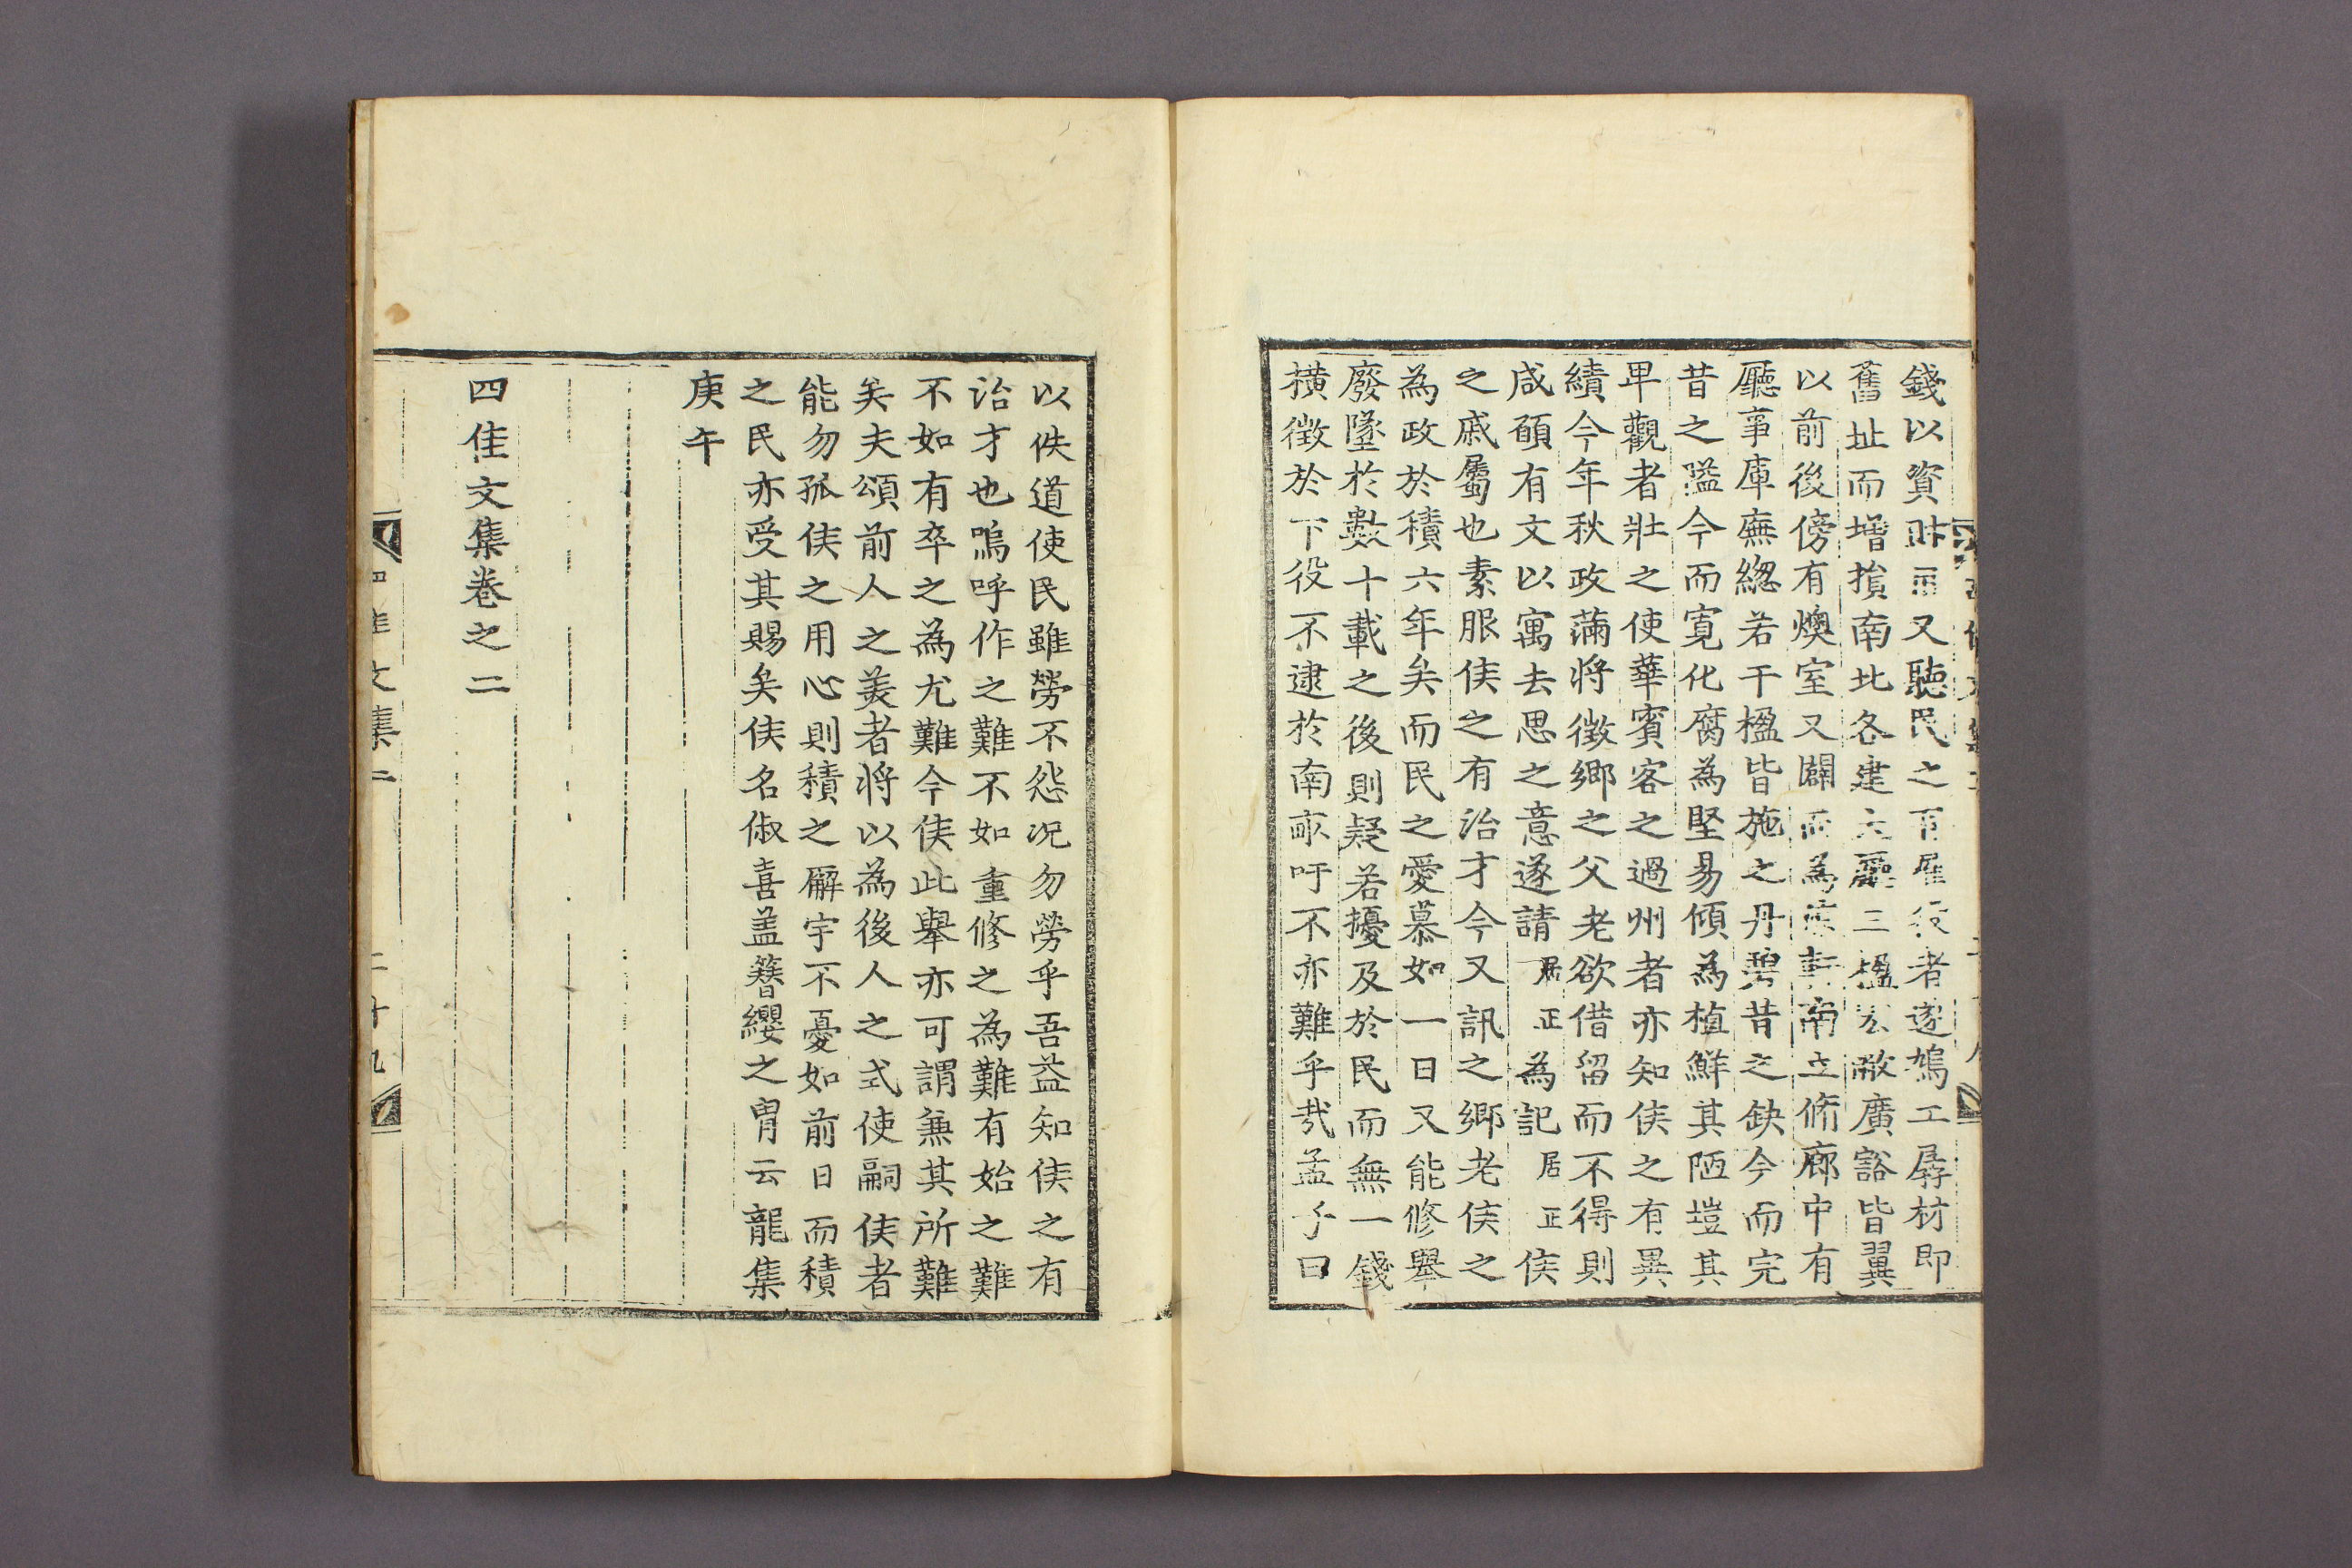 錢以資財而又聽民之有雇役者遂鳩工孱材即
舊址而增損南北各建大廳三楹宏敞廣豁皆翼
以前後傍有燠室又闢而為凉軒南立脩廊中有
廳事庫廡緫若干楹皆施之丹碧昔之缺今而完
昔之隘今而寛化腐為堅易傾為植鮮其陋塏其
卑觀者壯之使華賓客之過州者亦知侯之有異
績今年秋政滿將徵鄉之父老欲借留而不得則
咸願有文以寓去思之意遂請居正為記居正侯
之戚屬也素服侯之有治才今又訊之鄉老侯之
為政於積六年矣而民之愛慕如一日又能修舉
廢墜於數十載之後則疑若擾及於民而無一錢
橫徵於下役不逮於南畝吁不亦難乎哉孟子曰
以佚道使民雖勞不怨况勿勞乎吾益知侯之有
治才也嗚呼作之難不如重修之為難有始之難
不如有卒之為尤難今侯此舉亦可謂兼其所難
矣夫頌前人之羙者將以為後人之式使嗣侯者
能勿孤侯之用心則積之廨宇不憂如前日而積
之民亦受其賜矣侯名俶喜盖簪纓之胄云龍集
庚午
四佳文集卷之二
四佳文集二 二十九